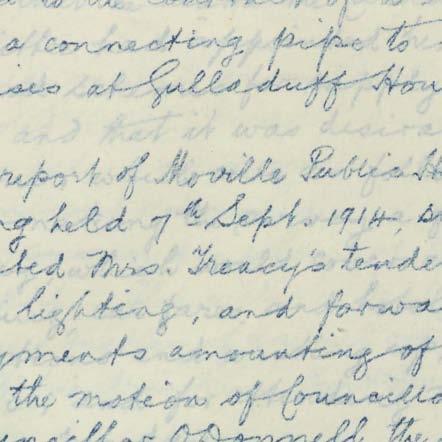 a connecting pipe to
ises at Gulladuff Hou
report of Moville Public H
ng held 7th Sept. 1914,
ted Mrs. Treacy's tende
lighting, and forwa
yments amounting of
the motion of Councillo
uncillor O'Donnell the